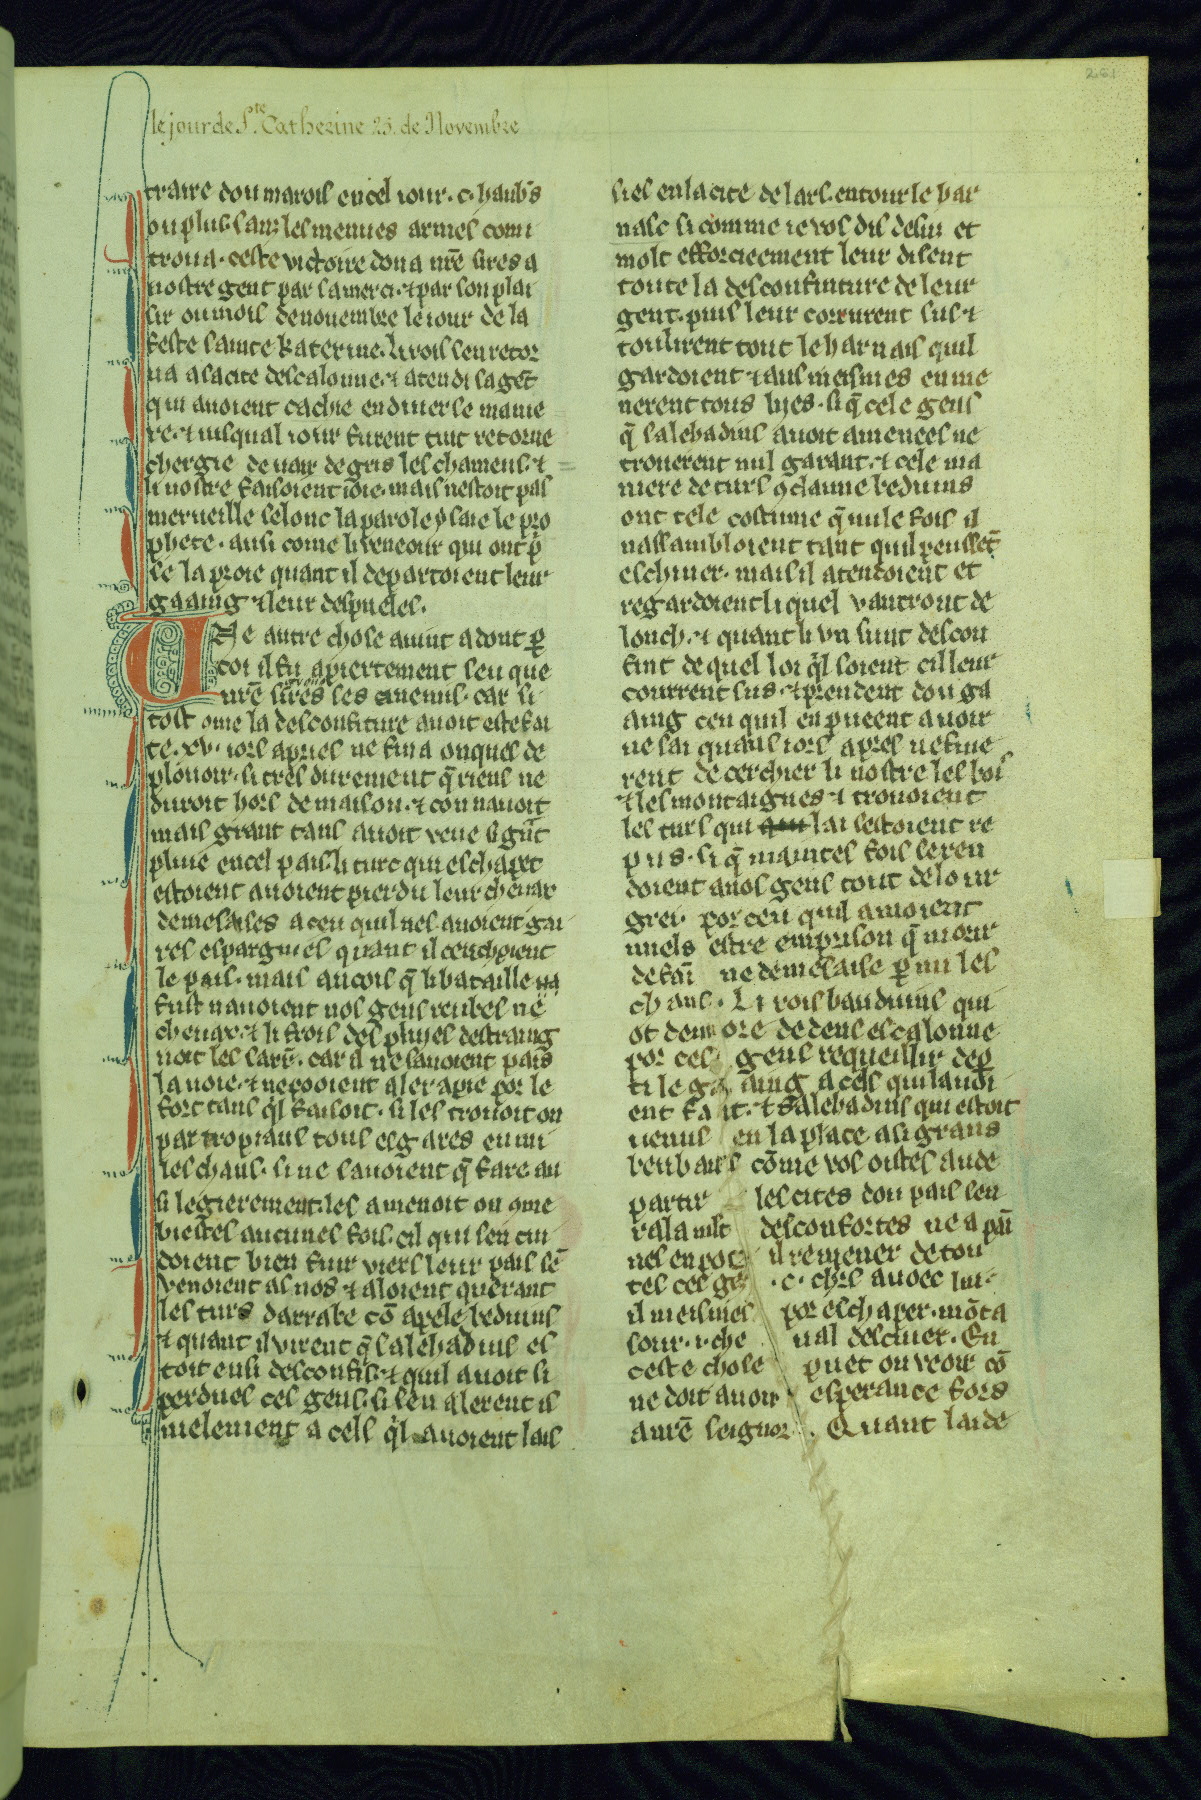 261
le jour de S.te Catherine 25. de Novembre
traire dou marois en cel iour .c. haub's
ou plus sanz les menues armes com i
troua. ceste victoire dona nr̄e sires a
nostre gent par sa merci. ⁊ par son plai
sir ou mois de nouembre le iour de la
feste sainte Katerine. Li rois sen retor
na a la cite descalonne. ⁊ atendi sa gēt
qui auoient cachie en diuerse manie
re. ⁊ iusqual iour furent tuit retorne
chergie de uair de gris les chameus. ⁊
li nostre faisoient ioie. mais nestoit pas
merueille selonc la parole ysaie le pro
phete. ausi come li veneour qui ont p̄
se la proie quant il departoient leur
gaaing ⁊ leur despueles.
Une autre chose auint adont p̄
coi il fu apiertement seu que
nr̄e sires les auenus. car si
tost ome la desconfiture auoit este fai
te. xv. iors apries ne fina onques de
plouoir. si tres durement q̄ riens ne
duroit hors de maison. ⁊ con nauoit
mais grant tans auoit veue si gūt
pluie en cel pais. li turc qui eschapet
estoient auoient pierdu leur cheuax
demesaises a ceu quil nes auoient gai
res espargnies quant il cerchoient
le pais. mais ancois q̄ li bataille
fust nauoient nos gens reubes ne
cheuax. ⁊ li frois des pluyes destraing
noit les sarr̄. car il ne sauoient pas
la uoie. ⁊ ne pooient aler a pie por le
fort tans q̄l faisoit. si les trouoit on
par tropiaus tous esgares enmi
les chans. si ne sauoient q̄ fare au
si legierement les amenoit on ome
biestes aucunes fois. cil qui sen cui
doient bien fuir viers leur pais sē
venoient as nos ⁊ aloient querant
les turs darrabe cō apele beduins
⁊ quant il virent q̄ salehadins es
toit ensi desconfis. ⁊ quil auoit si
perdues ces gens. si sen alerent is
nielement a cels q̄l auoient lais
sies en la cite de lars. entour le har
nasc si comme ie vos dis desus et
molt efforcieement leur disent
toute la desconfinture de leur
gent. puis leur corrurent sus ⁊
toulirent tout le harnais quil
gardoient ⁊ aus meismes enme
nerent tous lyes. si q̄ cele gens
q̄ salehadins auoit amenees ne
trouerent nul garant. ⁊ cele ma
niere de turs 9 claime beduins
ont tele costume q̄ nule fois il
nassambloient tant quil peussēt
eschiuer. mais il atendoient et
regardoient li quel vantront de
lonch. ⁊ quant li vn sunt descon
fint de quel loi q̄l soient cil leur
courrent sus. ⁊ prendent dou ga
aing ceu quil en pueent auoir
ne sai quans iors apres ne fine
rent de cerchier li nostre les bois
⁊ les montaignes ⁊ trouoient
les turs qui lai sestoient re
pus. si q̄ maintes fois se ren
doient a nos gens tout de lour
grei. por ceu quil amoient
miels estre en prison q̄ morir
de faī ne de mesaise p̄mi les
chans. Li rois bauduins qui
ot demore dedens escalonne
por ces gens requeillir dep̄
ti le gaaing a cels qui laudi
ent fait. ⁊ Salehadins qui estoit
uenus en la place a si grans
beubans cōme vos oistes aude
partir les cites dou pais sen
rala mlt desconfortes ne a pai
nes en pot il remener de tou
tes ces gēs .c. chrs auoec lui.
il meismes por eschaper. mōta
sour .i. che ual desciuer. En
ceste chose puet on veoir cō
ne doit auoir esperance fors
a nr̄e seignor. Quant laide